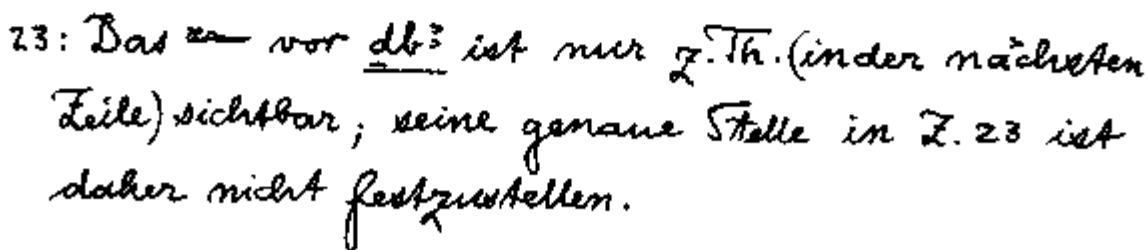 23: Das vor db³ ist nur z.Th. (in der nächsten
Zeile) sichtbar; seine genaue Stelle in Z. 23 ist
daher nicht festzustellen.